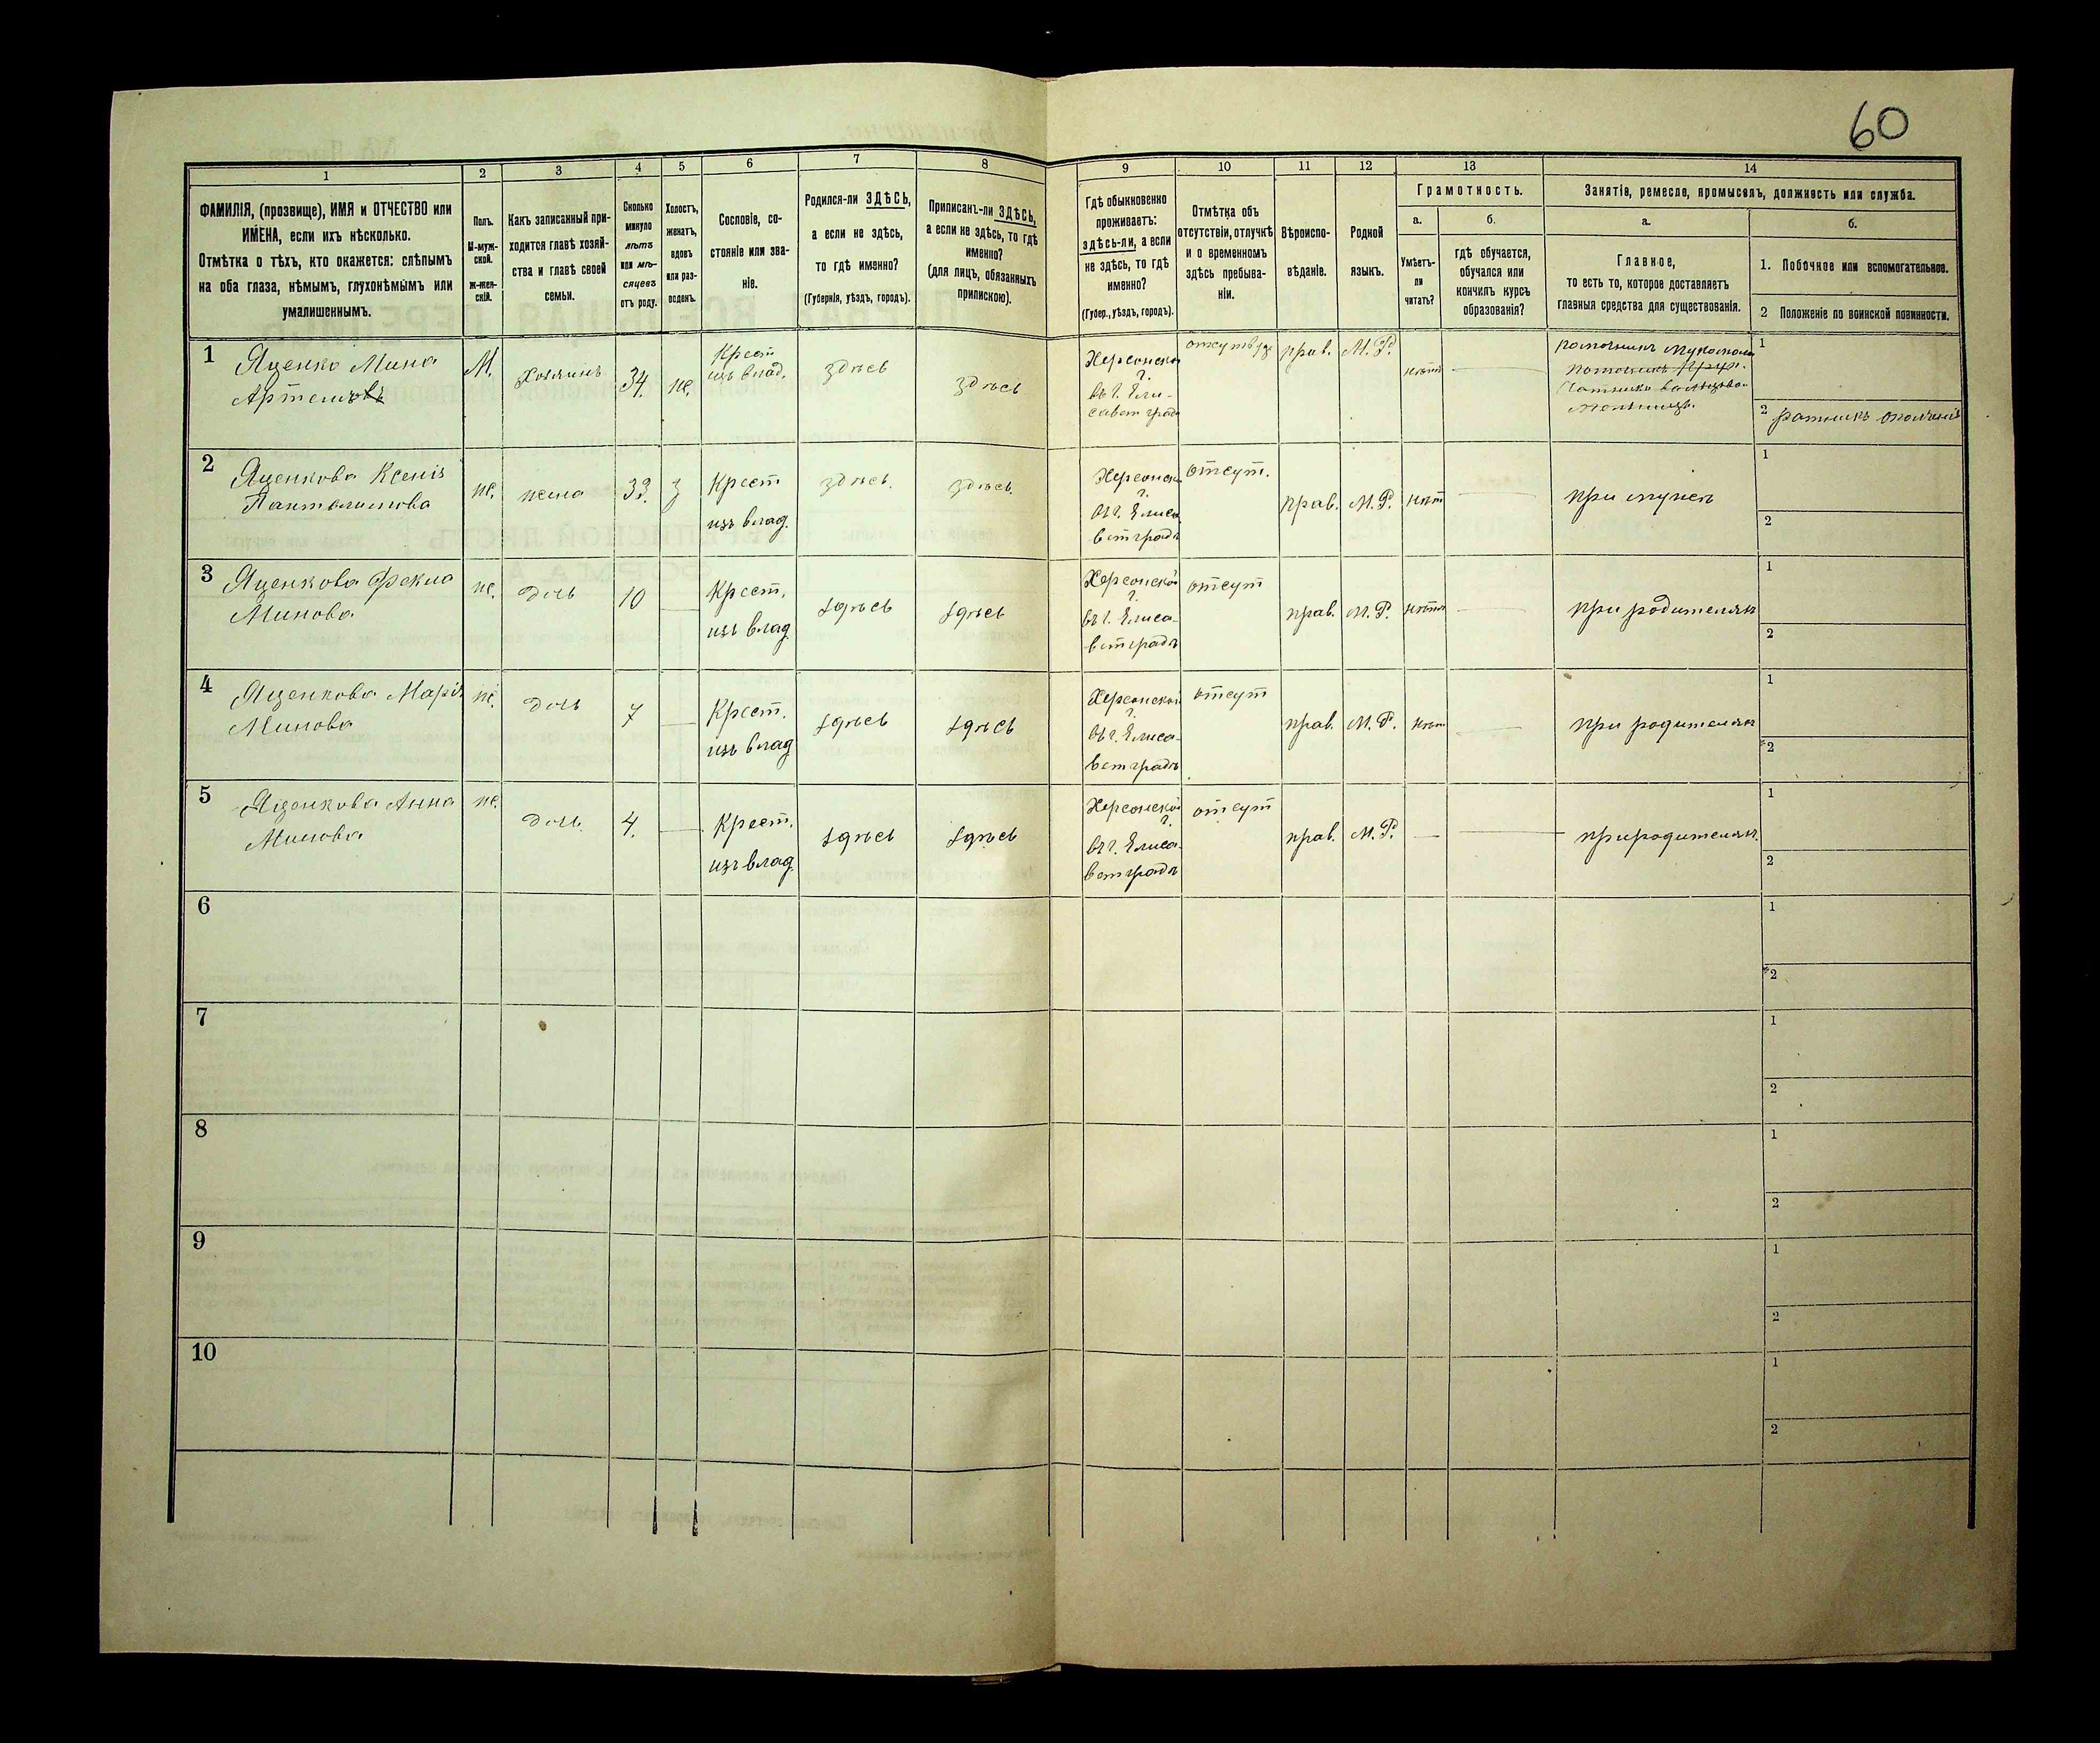 60
1
2
3
4
5
6
7
8
9
10
11
12
13
14
ФАМИЛІЯ, (прозвище), ИМЯ и ОТЧЕСТВО или
ИМЕНА, если ихъ нѣсколько.
Отмѣтка о тѣхъ, кто окажется: слѣпымъ
на оба глаза, нѣмымъ, глухонѣмымъ или
умалишеннымъ.
Полъ.
М-муж-
ской.
ж-жен-
скій.
Какъ записанный при-
ходится главѣ хозяй-
ства и главѣ своей
семьи.
Сколько
минуло
лѣтъ
или мѣ-
сяцевъ
отъ роду.
Холостъ,
женатъ,
вдовъ
или раз-
веденъ.
Сословіе, со-
стояніе или зва-
ніе.
Родился-ли ЗДѢСЬ,
а если не здѣсь,
то гдѣ именно?
(Губернія, уѣздъ, городъ).
Приписанъ-ли ЗДѢСЬ,
а если не здѣсь, то гдѣ
именно?
(для лицъ, обязанныхъ
припискою).
Гдѣ обыкновенно
проживаетъ:
здѣсь-ли, а если
не здѣсь, то гдѣ
именно?
(Губер., уѣздъ, городъ).
Отмѣтка объ
отсутствіи, отлучкѣ
и о временномъ
здѣсь пребыва-
ніи.
Вѣроиспо-
вѣданіе.
Родной
языкъ.
Грамотность.
а.
Умѣетъ-
ли
читать?
б.
гдѣ обучается,
обучался или
кончилъ курсъ
образованія?
Занятіе, ремесло, промыселъ, должность или служба.
а.
Главное,
то есть то, которое доставляетъ
главныя средства для существованія.
б.
1. Побочное или вспомогательное.
2 Положеніе по воинской повинности.
1
Яценко Мина
М.
Хозяинъ
34.
же.
Крест
изъ влад.
здѣсь
здѣсь
Херсонской
г.
въ г. Ели-
саветградѣ
прав.
М. Р.
нѣтъ
1
2 ратникъ ополченія
2
Яценкова Ксенія
же.
жена
33.
з
Крест
изъ влад.
здѣсь.
здѣсь.
Херсонской
г.
въ г. Елиса
ветградѣ
отсут.
прав.
М. Р.
нѣт
при мужѣ
1
2
3
Яценкова Фекла
Минова
же.
дочь
10
Крест.
изъ влад
здѣсь
здѣсь
Херсонской
г.
въ г. Елиса-
ветградѣ
отсут
прав.
М. Р.
нѣтъ
при родителях
1
2
4
Яценкова Марія
Минова
же.
дочь
7
Крест.
изъ влад
здѣсь
здѣсь
Херсонской
г.
въ г. Елиса-
ветградѣ
отсут
прав.
М. Р.
нѣт
при родителях
1
2
5
Яценкова Анна
Минова
же.
дочь
4.
Крест.
изъ влад.
здѣсь
здѣсь
Херсонской
г.
въ г. Елиса-
ветградѣ
отсут
прав.
М. Р.
при родителях.
1
2
6
1
2
7
1
2
8
1
2
9
1
2
10
1
2